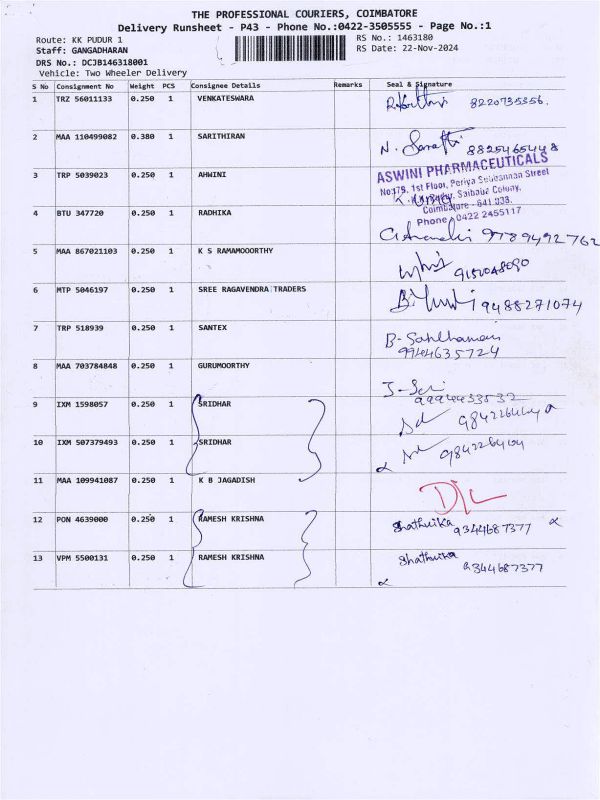 THE PROFESSIONAL COURIERS, COIMBATORE
Delivery Runsheet - P43 - Phone No.:0422-3505555 - Page No.:1
Route: KK PUDUR 1
RS No.: 1463180
Staff: GANGADHARAN
RS Date: 22-Nov-2024
DRS No.: DCJB146318001
Vehicle: Two Wheeler Delivery
S No Consignment No Weight PCS Consignee Details Remarks Seal & Signature
1 TRZ 56011133 0.250 1 VENKATESWARA 8220735356.
2 MAA 110499082 0.380 1 SARITHIRAN N. 8825465448
3 TRP 5039023 0.250 1 AHWINI
ASWINI PHARMACEUTICALS
No:179, 1st Floor, Periya Subbannan Street
K.K. Pudur, Saibaba Colony,
Coimbatore - 641 038.
Phone : 0422 2455117
4 BTU 347720 0.250 1 RADHIKA 9789492762
5 MAA 867021103 0.250 1 K S RAMAMOOORTHY
6 MTP 5046197 0.250 1 SREE RAGAVENDRA TRADERS 9488271074
7 TRP 518939 0.250 1 SANTEX
9944635724
8 MAA 703784848 0.250 1 GURUMOORTHY
9994433532
9 IXM 1598057 0.250 1 SRIDHAR
10 IXM 507379493 0.250 1 SRIDHAR
11 MAA 109941087 0.250 1 K B JAGADISH
12 PON 4639000 0.250 1 RAMESH KRISHNA Shathvika 9344687377
13 VPM 5500131 0.250 1 RAMESH KRISHNA Shathvika 9344687377